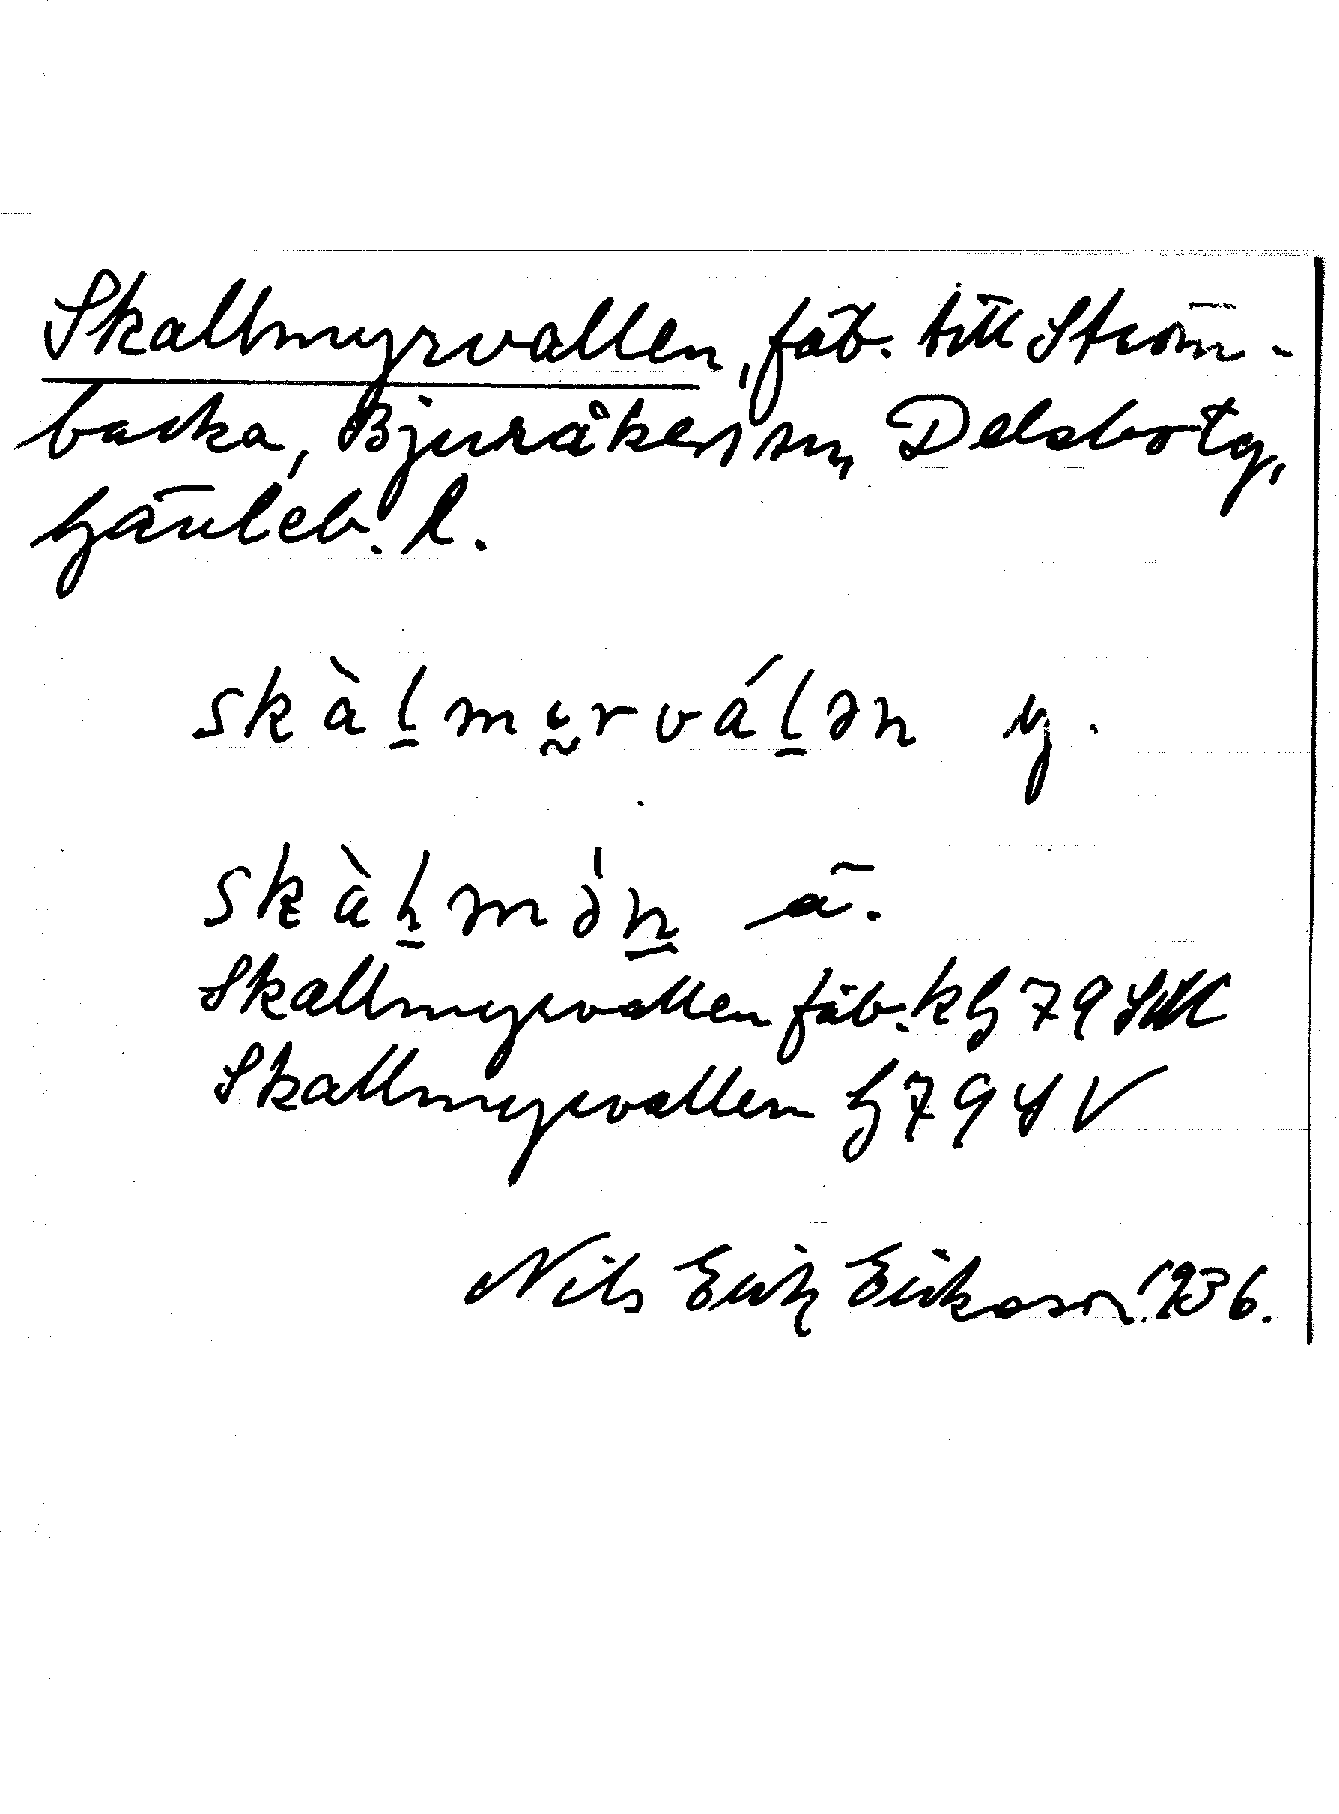 Skallmyrvallen, fäb. till Ström-
backa, Bjuråkers sn, Delsbo tg,
Gävleb. l.
skàl̲my̰rvál̲ən y.
skàl̲mən̲ ä.
Skallmyrvallen fäb. kG 79 SV
Skallmyrvallen G 79 SV
Nils Erik Erikson 1936.